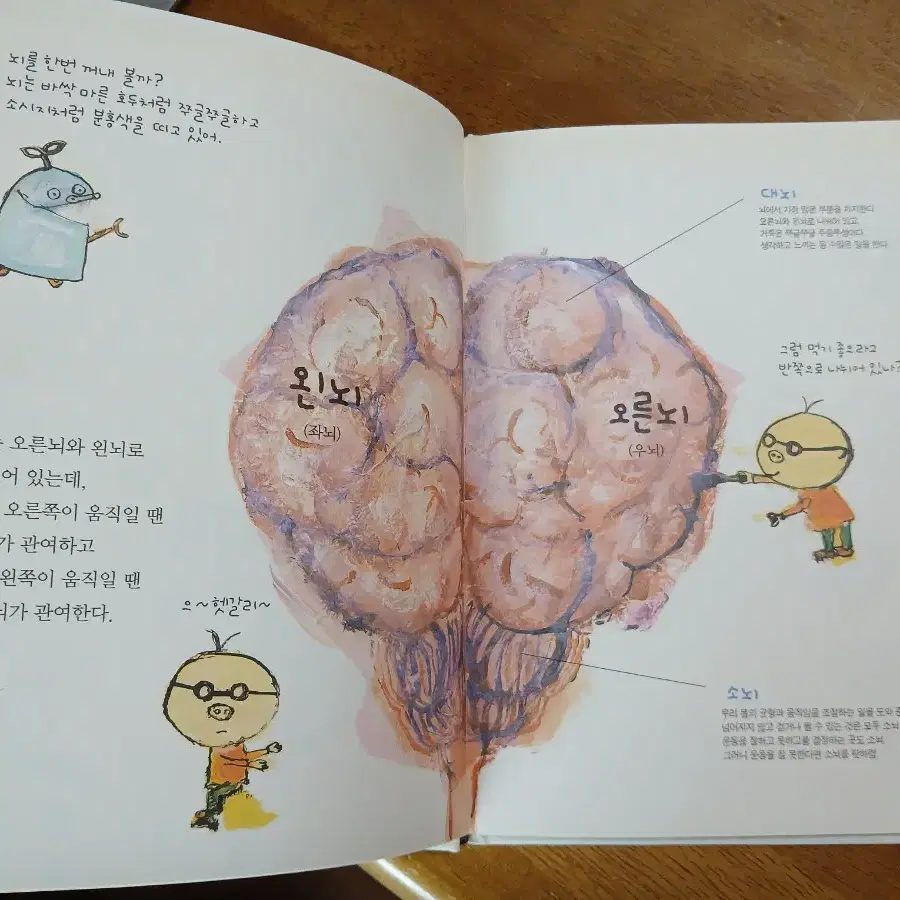 뇌를 한번 꺼내 볼까?
뇌는 바싹 마른 호두처럼 쭈글쭈글하고
소시지처럼 분홍색을 띠고 있어.
오른뇌와 왼뇌로
어 있는데,
오른쪽이 움직일 땐
가 관여하고
왼쪽이 움직일 땐
뇌가 관여한다.
으~헷갈리~
왼뇌
(좌뇌)
오른뇌
(우뇌)
대뇌
뇌에서 가장 많은 부분을 차지한다
오른뇌와 왼뇌로 나뉘어 있고,
거죽은 쭈글쭈글 주름투성이다
생각하고 느끼는 등 수많은 일을 한다
그럼 먹기 좋으라고
반쪽으로 나뉘어 있나?
소뇌
우리 몸의 균형과 움직임을 조절하는 일을 도와
넘어지지 않고 걷거나 뛸 수 있는 것은 모두 소뇌
운동을 잘하고 못하고를 결정하는 곳도 소뇌
그러니 운동을 잘 못한다면 소뇌를 탓하렴